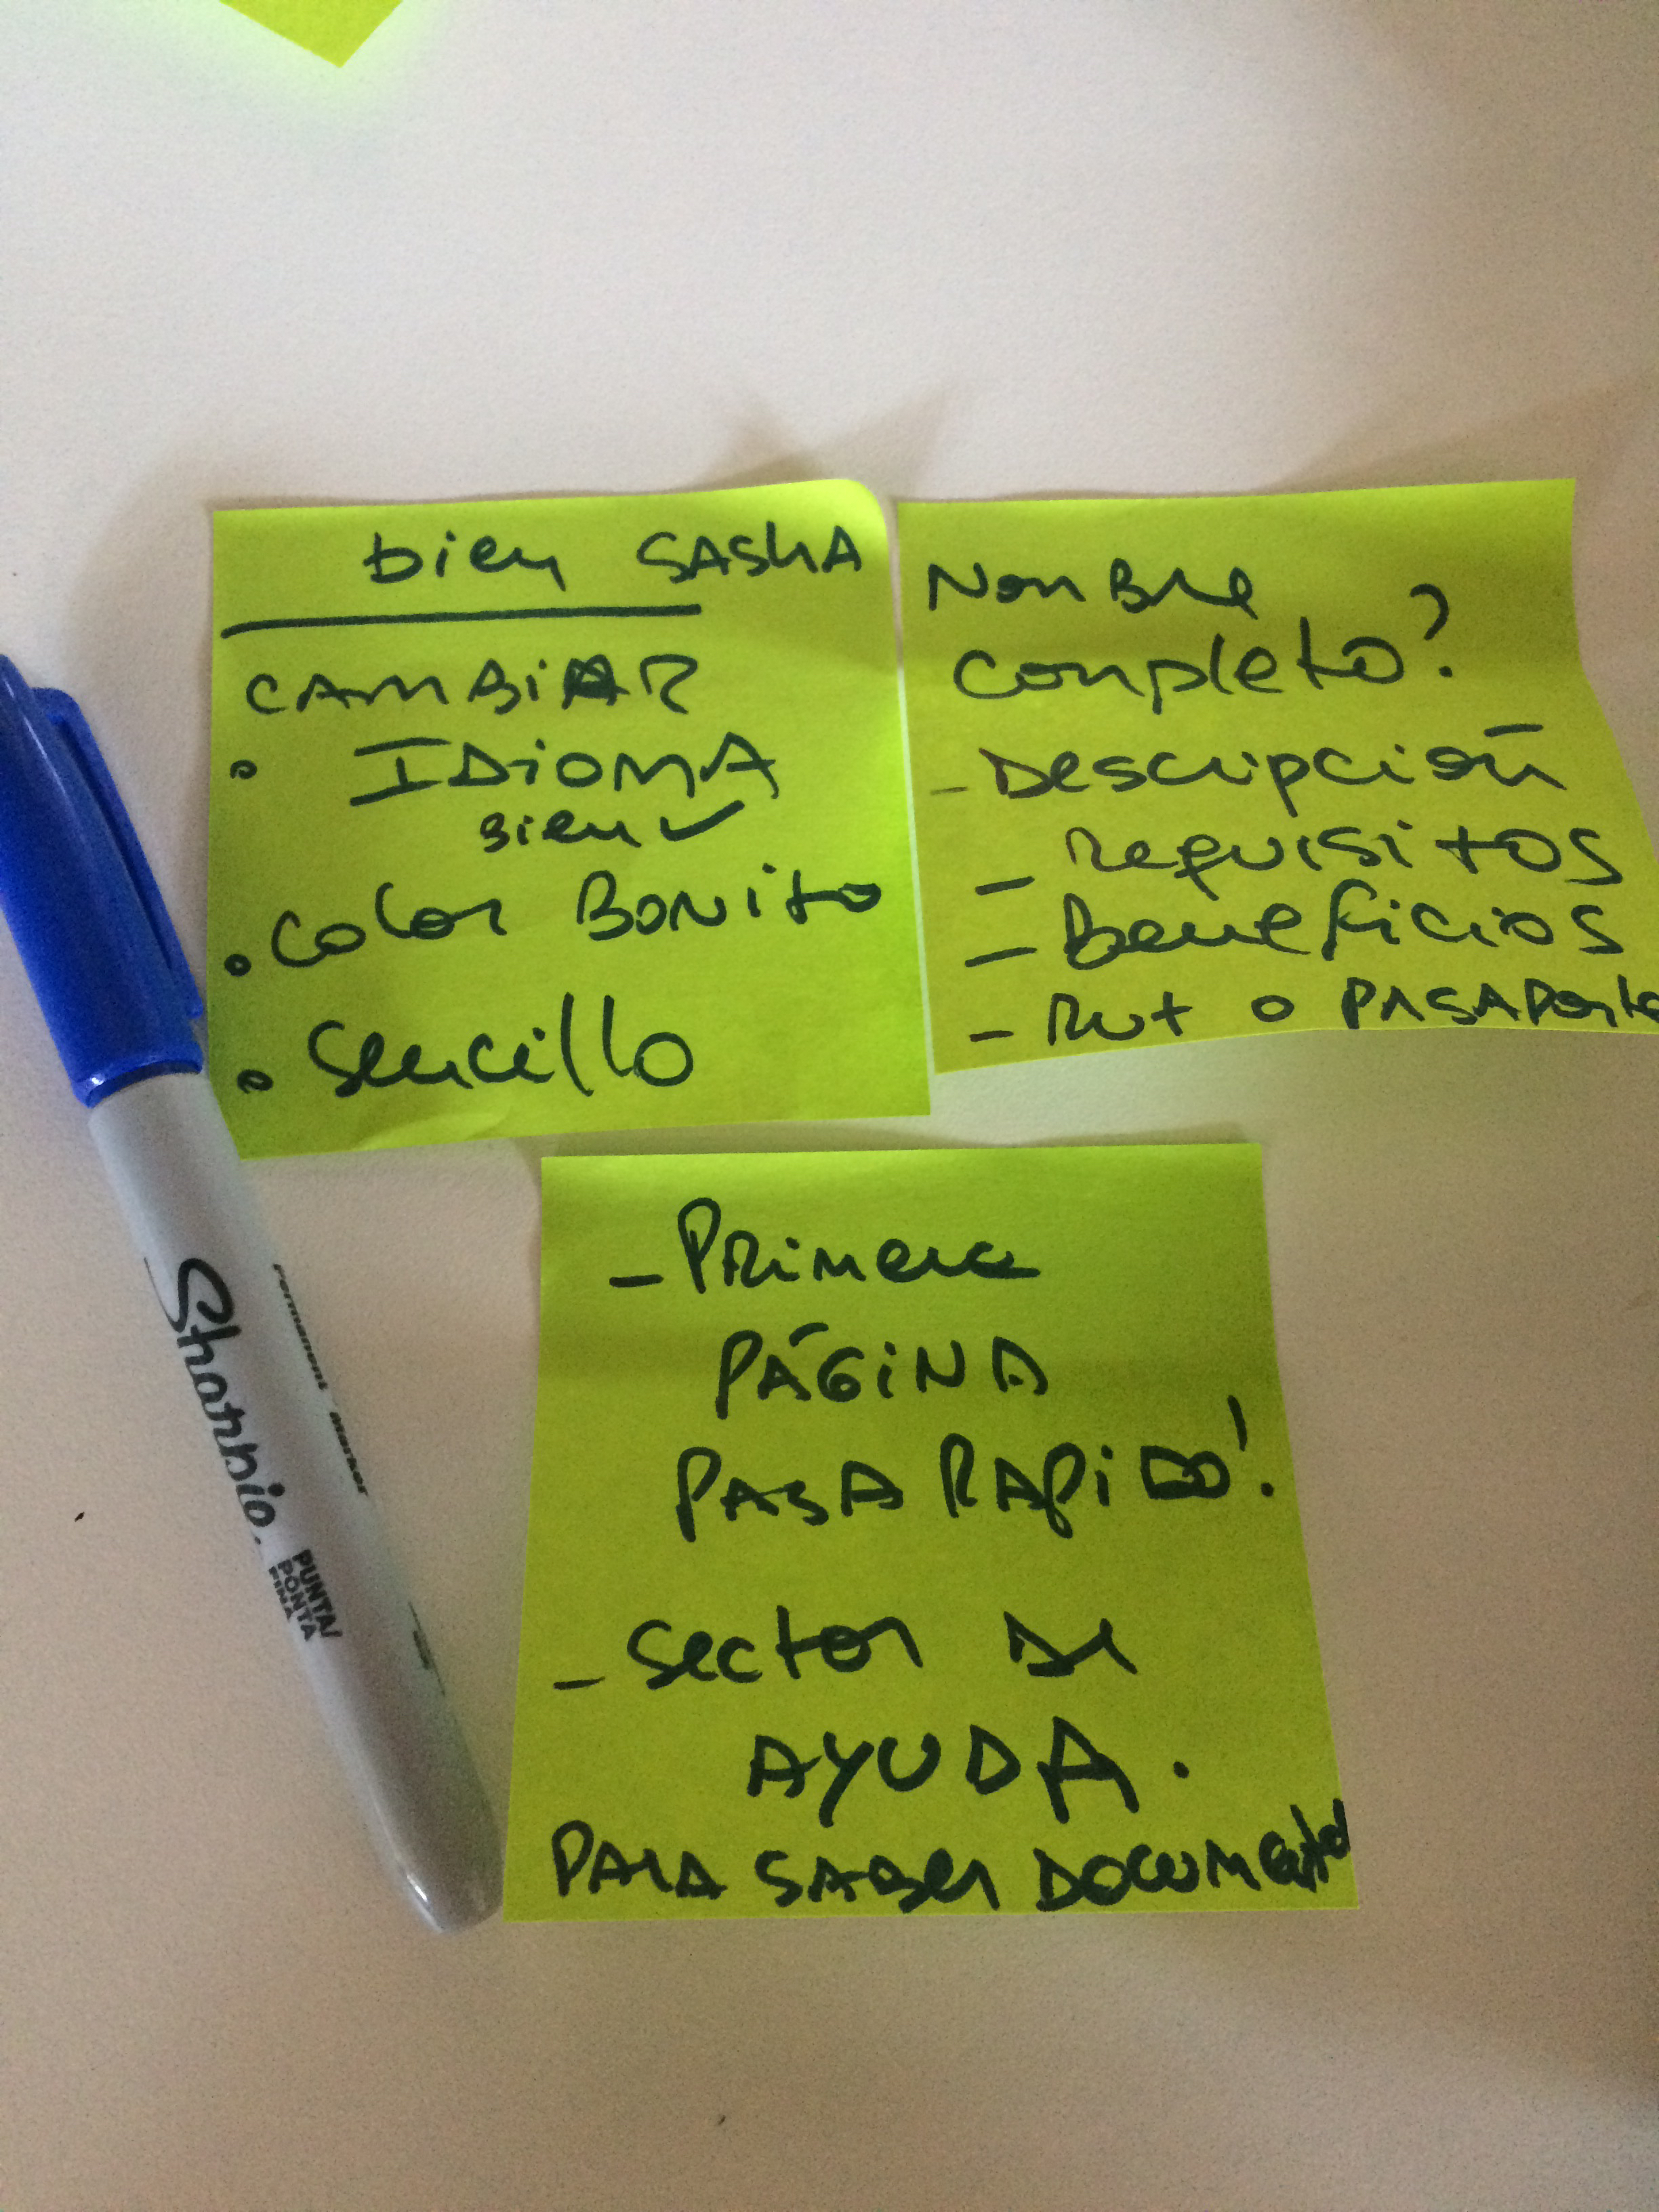 bien SASHA
CAMBIAR
• IDIOMA
Bien ✓
• Color BONito
• Sencillo
Nombre
completo?
- Descripción
- Requisitos
- Beneficios
- Rut o PASAPorte
- PRimera
PÁGINA
PASA RAPiDO!
- Sector De
AYUDA.
PARA SABER DOCUMentos
Sharpie.
Permanent Marker
PUNTA/
PONTA
FINA